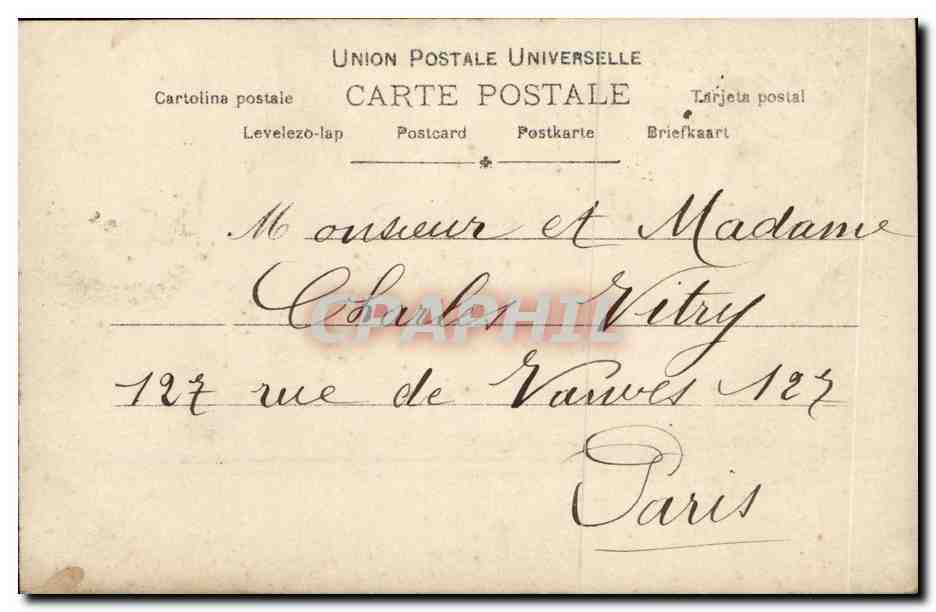 UNION POSTALE UNIVERSELLE
Cartolina postale CARTE POSTALE Tarjeta postal
Levelezö-lap Postcard Postkarte Briefkaart
Monsieur et Madame
Charles Vitry
CPAPHIL
127 rue de Vanves 127
Paris